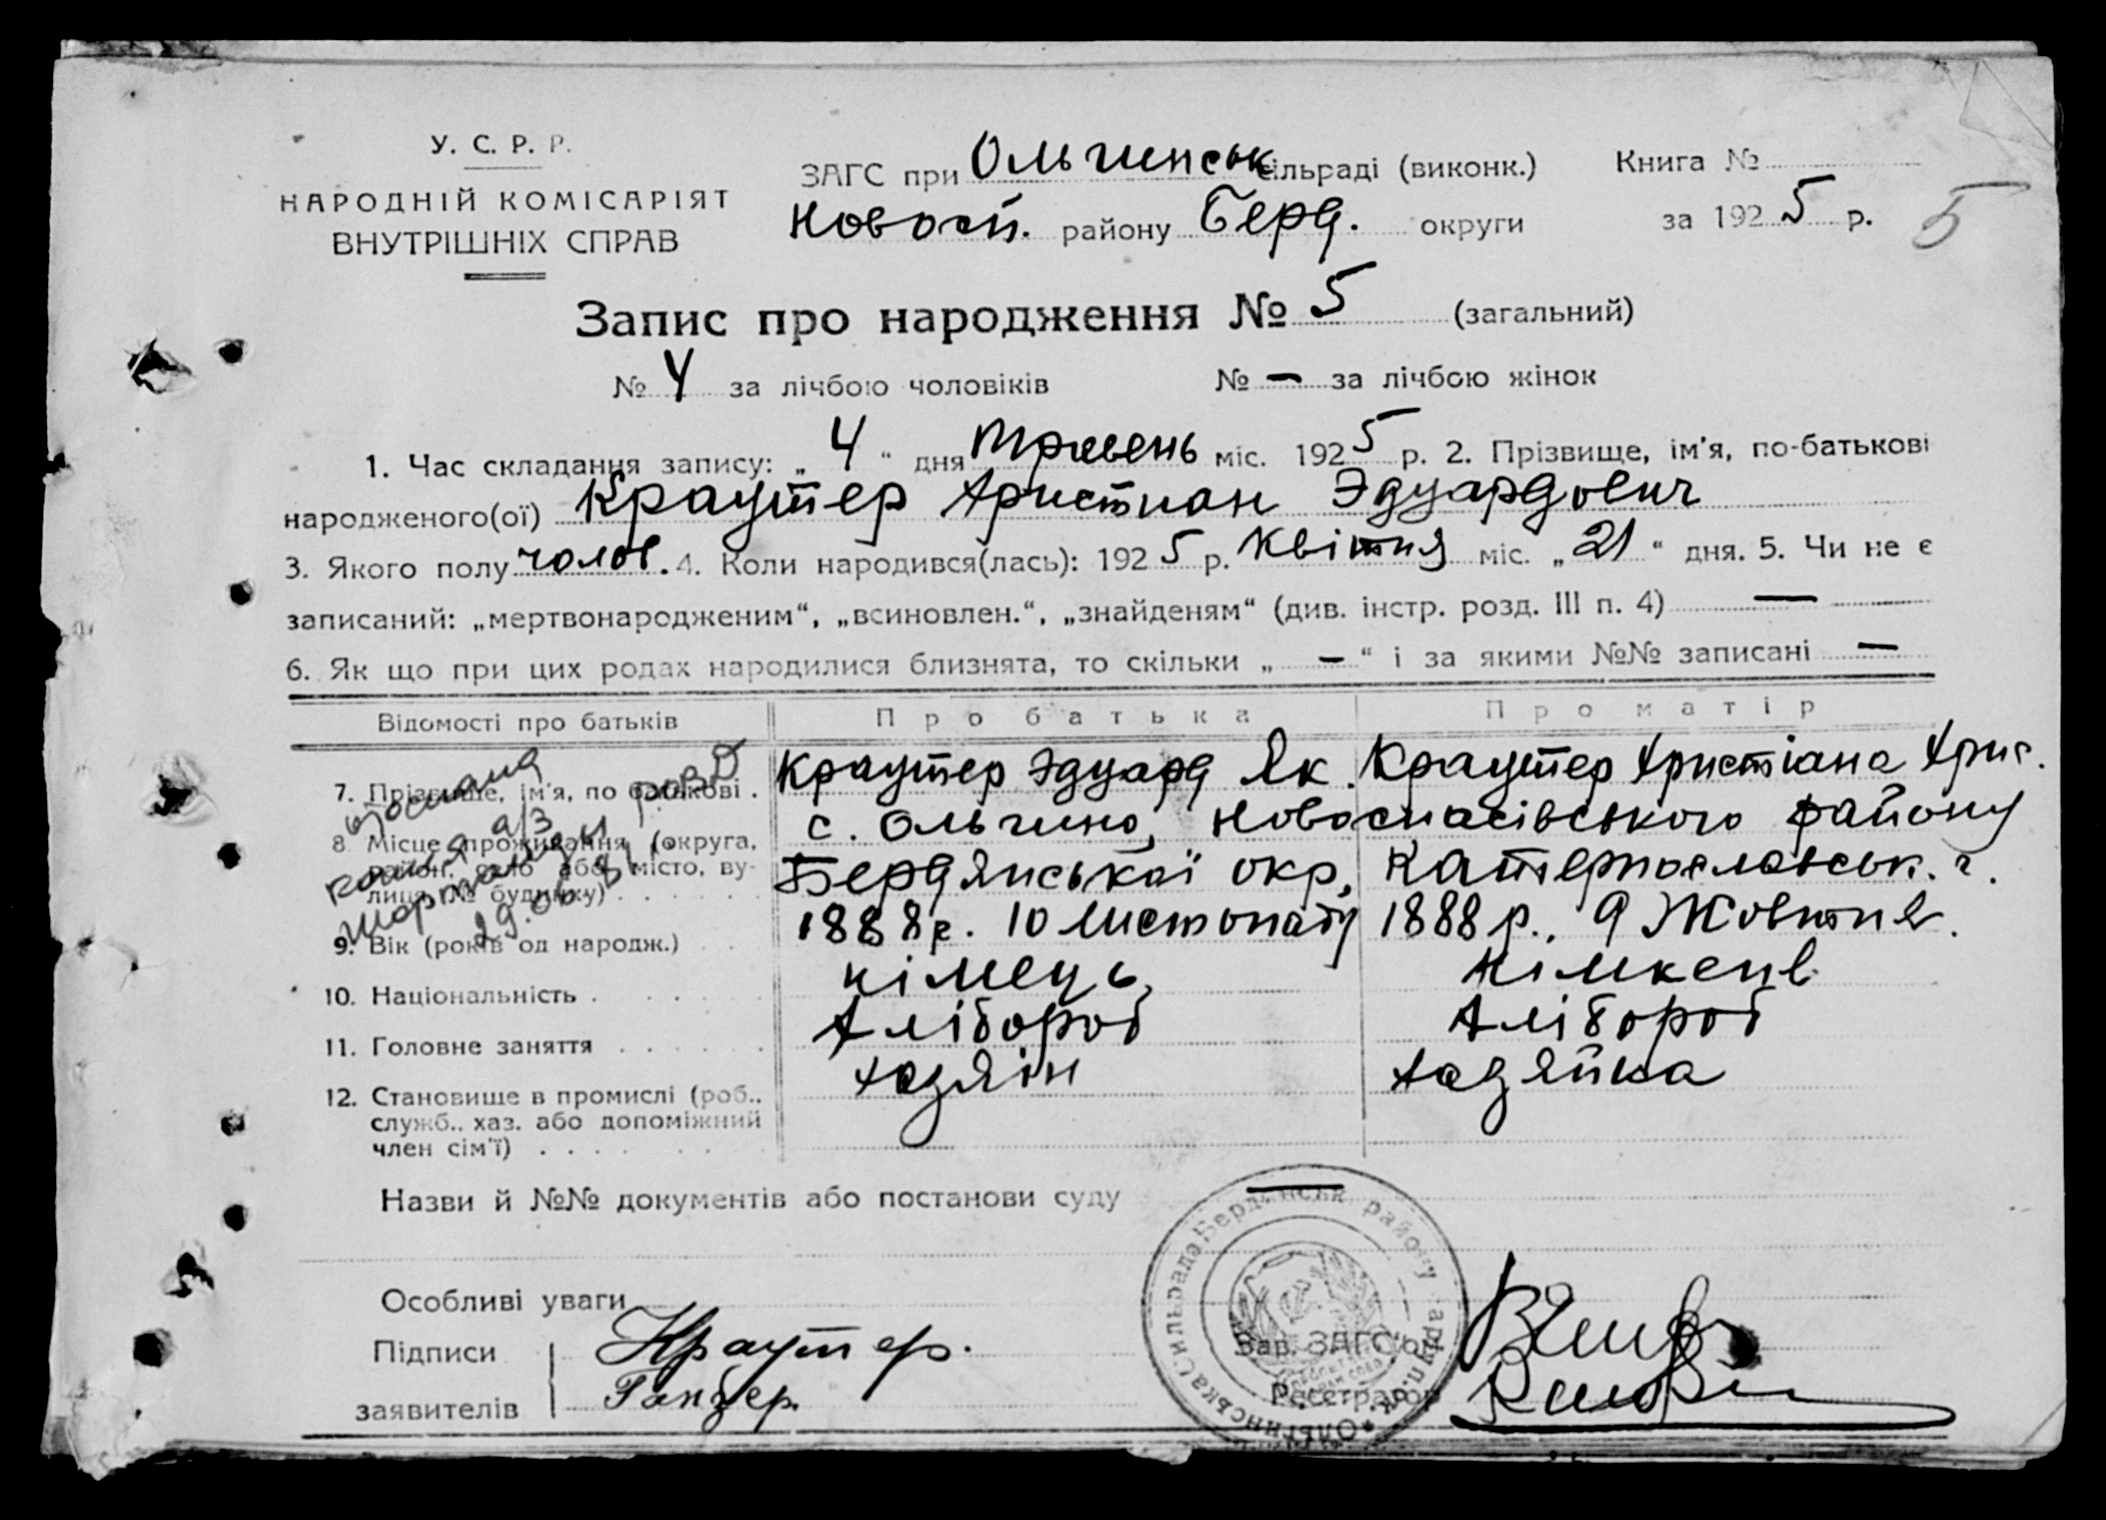 У. С. Р. Р.
НАРОДНІЙ КОМІСАРІЯТ
ВНУТРІШНІХ СПРАВ
ЗАГС при Ольгинськ сільраді (виконк.) Книга №
Новосп. району Берд. округи за 1925 р. 5
Запис про народження № 5 (загальний)
№ 4 за лічбою чоловіків № — за лічбою жінок
1. Час складання запису: „ 4 “ дня травень міс. 1925 р. 2. Прізвище, ім'я, по-батькові
народженого(ої) Краутер Христиан Эдуардович
3. Якого полу чолов. 4. Коли народився(лась): 1925 р. Квітня міс. „ 21 “ дня. 5. Чи не є
записаний: „мертвонародженим“, „всиновлен.“, „знайденям“ (див. інстр. розд. III п. 4) —
6. Як що при цих родах народилися близнята, то скільки „ — “ і за якими №№ записані —
Відомості про батьків Про батька Про матір
7. Прізвище, ім'я, по батькові . Краутер Эдуард Як. Краутер Христіана Хрис.
8 Місце проживання (округа, с. Ольгино, Новоспасівського району
район, село або місто, ву-
лиця, № будинку) . . . . . . Бердянської окр, Катеринославськ. г.
9. Вік (років од народж.) . . 1888 р. 10 Листопаду 1888 р., 9 Жовтня.
10. Національність . німець,
11. Головне заняття . . . . . . Хлібороб Хлібороб
12. Становище в промислі (роб.. хазяін хазяйка
служб.. хаз. або допоміжний
член сім'ї) . . . .
выдана
копия а/з
29.06.81 г.
Назви й №№ документів або постанови суду —
Особливі уваги
Підписи Краутер. Зав. ЗАГС'ом
заявителів Реєстратор